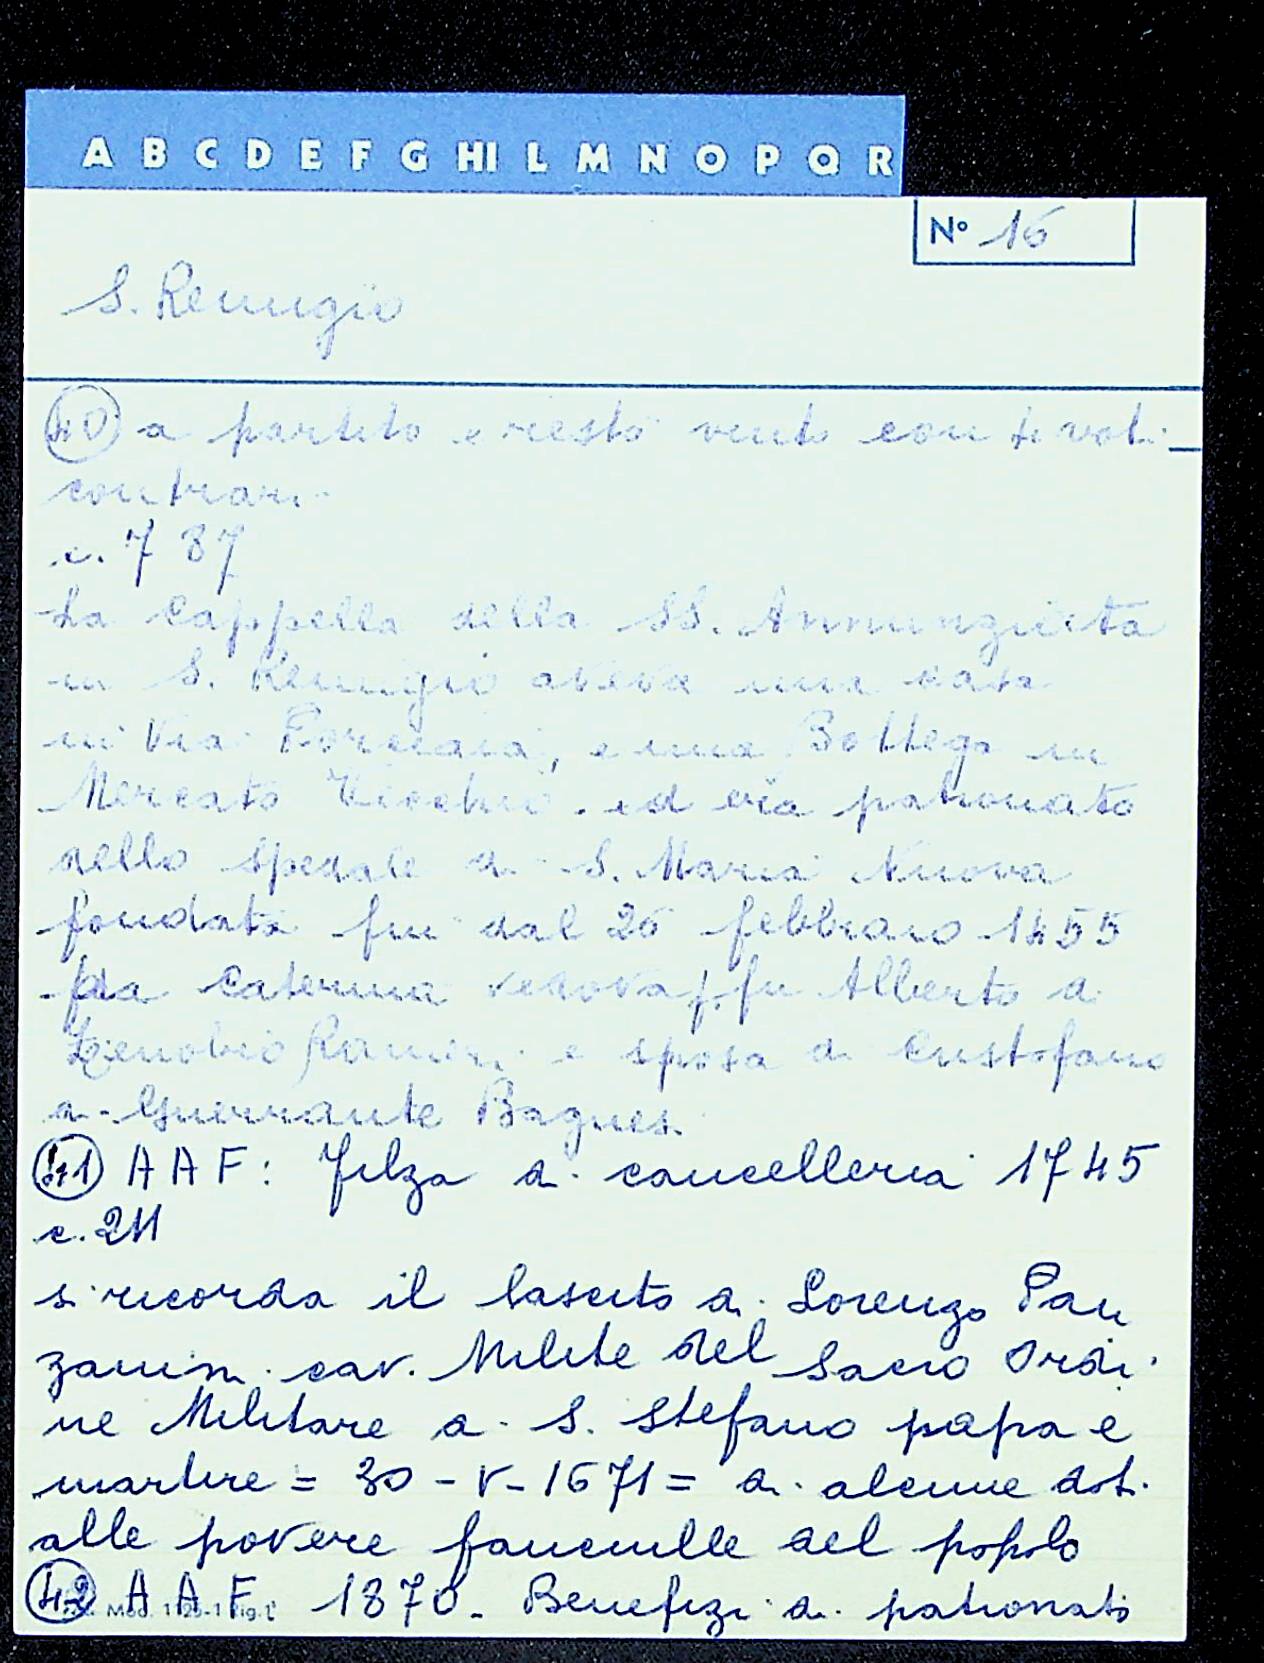 A B C D E F G HI L M N O P Q R
N° 16
S. Remigio
40 a partito e restò vinto con 4 voti
contrari.
c. 787
La Cappella della SS. Annunziata
in S. Remigio aveva una casa
in Via Porciaia, e una Bottega in
Mercato Vecchio. ed era patronato
dello Spedale di S. Maria Nuova
fondata fin dal 26 febbraio 1455
da Caterina vedova f. fu Alberto di
Zenobio e sposa di Cristofano
di Guerrante Bagnesi
41 A A F: Filza di cancelleria 1745
c. 211
si ricorda il lascito di Lorenzo Pan
zanini cav. Milite del Sacro Ordi
ne Militare di S. Stefano papa e
martire = 30 - V - 1671 = di alcune doti
alle povere fanciulle del popolo
42 A A F. 1870 - Benefizi di patronato